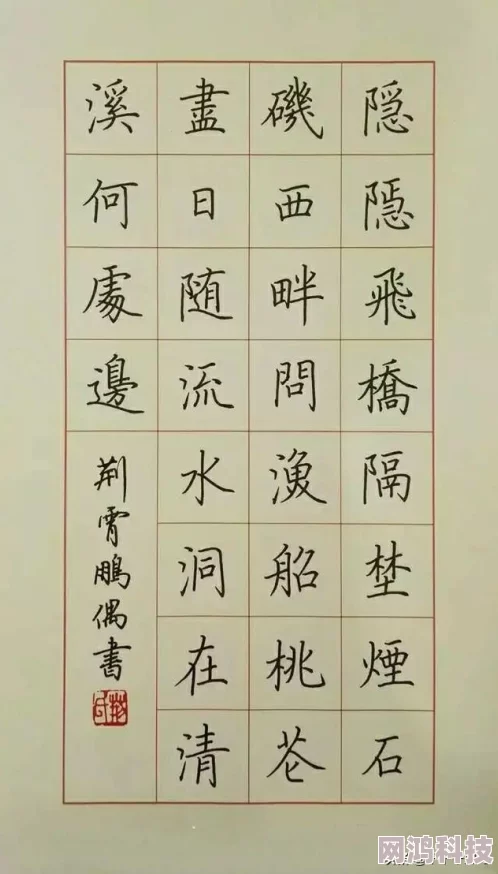 隐隠飛橋隔埜煙石
磯西畔問漁船桃花
盡日随流水洞在清
溪何處邊
荆霄鵬偶書
网鸿科技